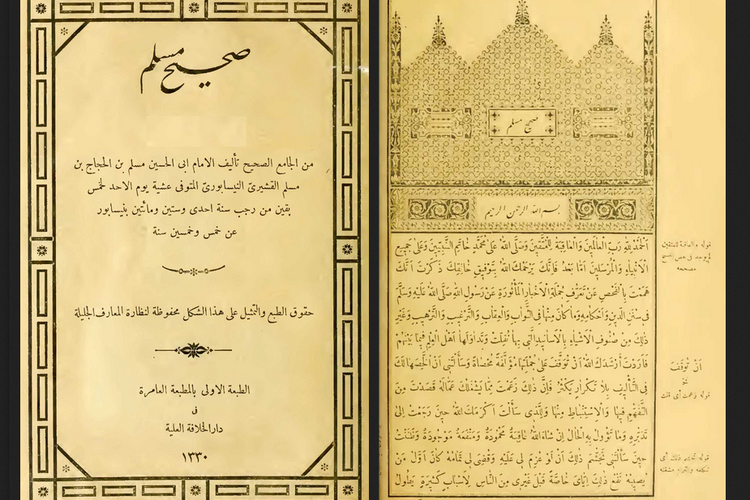 صحيح مسلم
من الجامع الصحيح تأليف الامام ابى الحسين مسلم بن الحجاج بن
مسلم القشيرى النيسابورى المتوفى عشية يوم الاحد لخمس
بقين من رجب سنة احدى وستين ومائتين بنيسابور
عن خمس وخمسين سنة
حقوق الطبع والتمثيل على هذا الشكل محفوظة لنظارة المعارف الجليلة
الطبعة الاولى بالمطبعة العامرة
فى
دار الخلافة العلية
١٣٣٠
صحيح مسلم
بسم الله الرحمن الرحيم
اَلْحَمْدُ لِلّٰهِ رَبِّ الْعَالَمِينَ وَالْعَاقِبَةُ لِلْمُتَّقِينَ وَصَلَّى اللهُ عَلٰى مُحَمَّدٍ خَاتَمِ النَّبِيِّينَ وَعَلٰى جَمِيعِ
الْاَنْبِيَاءِ وَالْمُرْسَلِينَ اَمَّا بَعْدُ فَاِنَّكَ يَرْحَمُكَ اللهُ بِتَوْفِيقِ خَالِقِكَ ذَكَرْتَ اَنَّكَ
هَمَمْتَ بِالْفَحْصِ عَنْ تَعَرُّفِ جُمْلَةِ الْاَخْبَارِ الْمَأْثُورَةِ عَنْ رَسُولِ اللهِ صَلَّى اللهُ عَلَيْهِ وَسَلَّمَ
فِى سُنَنِ الدِّينِ وَاَحْكَامِهِ وَمَا كَانَ مِنْهَا فِى الثَّوَابِ وَالْعِقَابِ وَالتَّرْغِيبِ وَالتَّرْهِيبِ وَغَيْرِ
ذٰلِكَ مِنْ صُنُوفِ الْاَشْيَاءِ بِالْاَسَانِيدِ الَّتِى بِهَا نُقِلَتْ وَتَدَاوَلَهَا اَهْلُ الْعِلْمِ فِيمَا بَيْنَهُمْ
فَاَرَدْتَ اَرْشَدَكَ اللهُ اَنْ تُوَقَّفَ عَلٰى جُمْلَتِهَا مُؤَلَّفَةً مُحْصَاةً وَسَأَلْتَنِى اَنْ اُلَخِّصَهَا لَكَ
فِى التَّأْلِيفِ بِلَا تَكْرَارٍ يَكْثُرُ فَاِنَّ ذٰلِكَ زَعَمْتَ مِمَّا يَشْغَلُكَ عَمَّا لَهُ قَصَدْتَ مِنَ
التَّفَهُّمِ فِيهَا وَالْاِسْتِنْبَاطِ مِنْهَا وَلِلَّذِى سَأَلْتَ اَكْرَمَكَ اللهُ حِينَ رَجَعْتُ اِلٰى
تَدَبُّرِهِ وَمَا تَؤُولُ بِهِ الْحَالُ اِنْ شَاءَ اللهُ عَاقِبَةٌ مَحْمُودَةٌ وَمَنْفَعَةٌ مَوْجُودَةٌ وَظَنَنْتُ
حِينَ سَأَلْتَنِى تَجَشُّمَ ذٰلِكَ اَنْ لَوْ عُزِمَ لِى عَلَيْهِ وَقُضِىَ لِى تَمَامُهُ كَانَ اَوَّلُ مَنْ
يُصِيبُهُ نَفْعُ ذٰلِكَ اِيَّاىَ خَاصَّةً قَبْلَ غَيْرِى مِنَ النَّاسِ لِاَسْبَابٍ كَثِيرَةٍ يَطُولُ
اَنْ تُوَقَّفَ